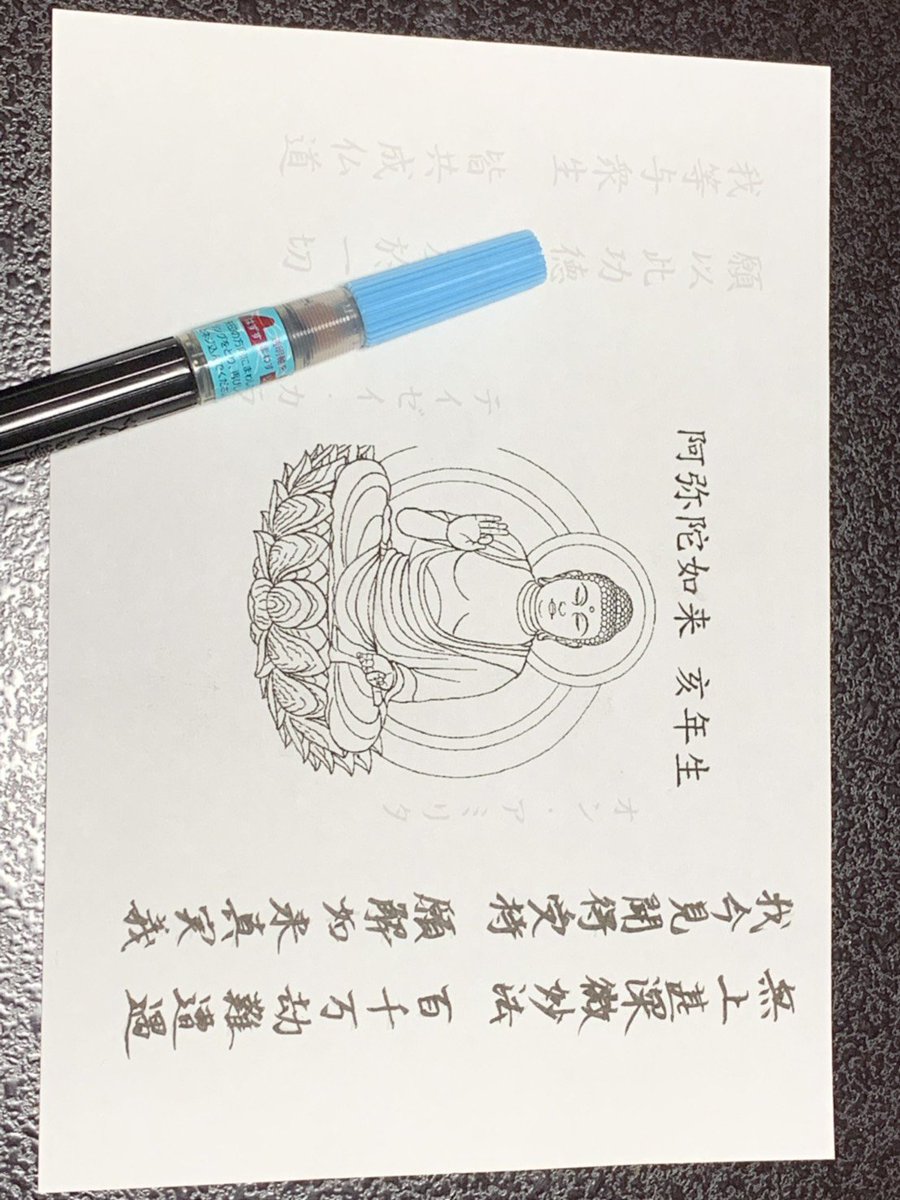 阿弥陀如来 亥年生
無上甚深微妙法 百千万劫難遭遇
我今見聞得受持 願解如来真実義
オン・アミリタ
テイゼイ・カラ
願以此功徳 於一切
我等与衆生 皆共成仏道
はずす